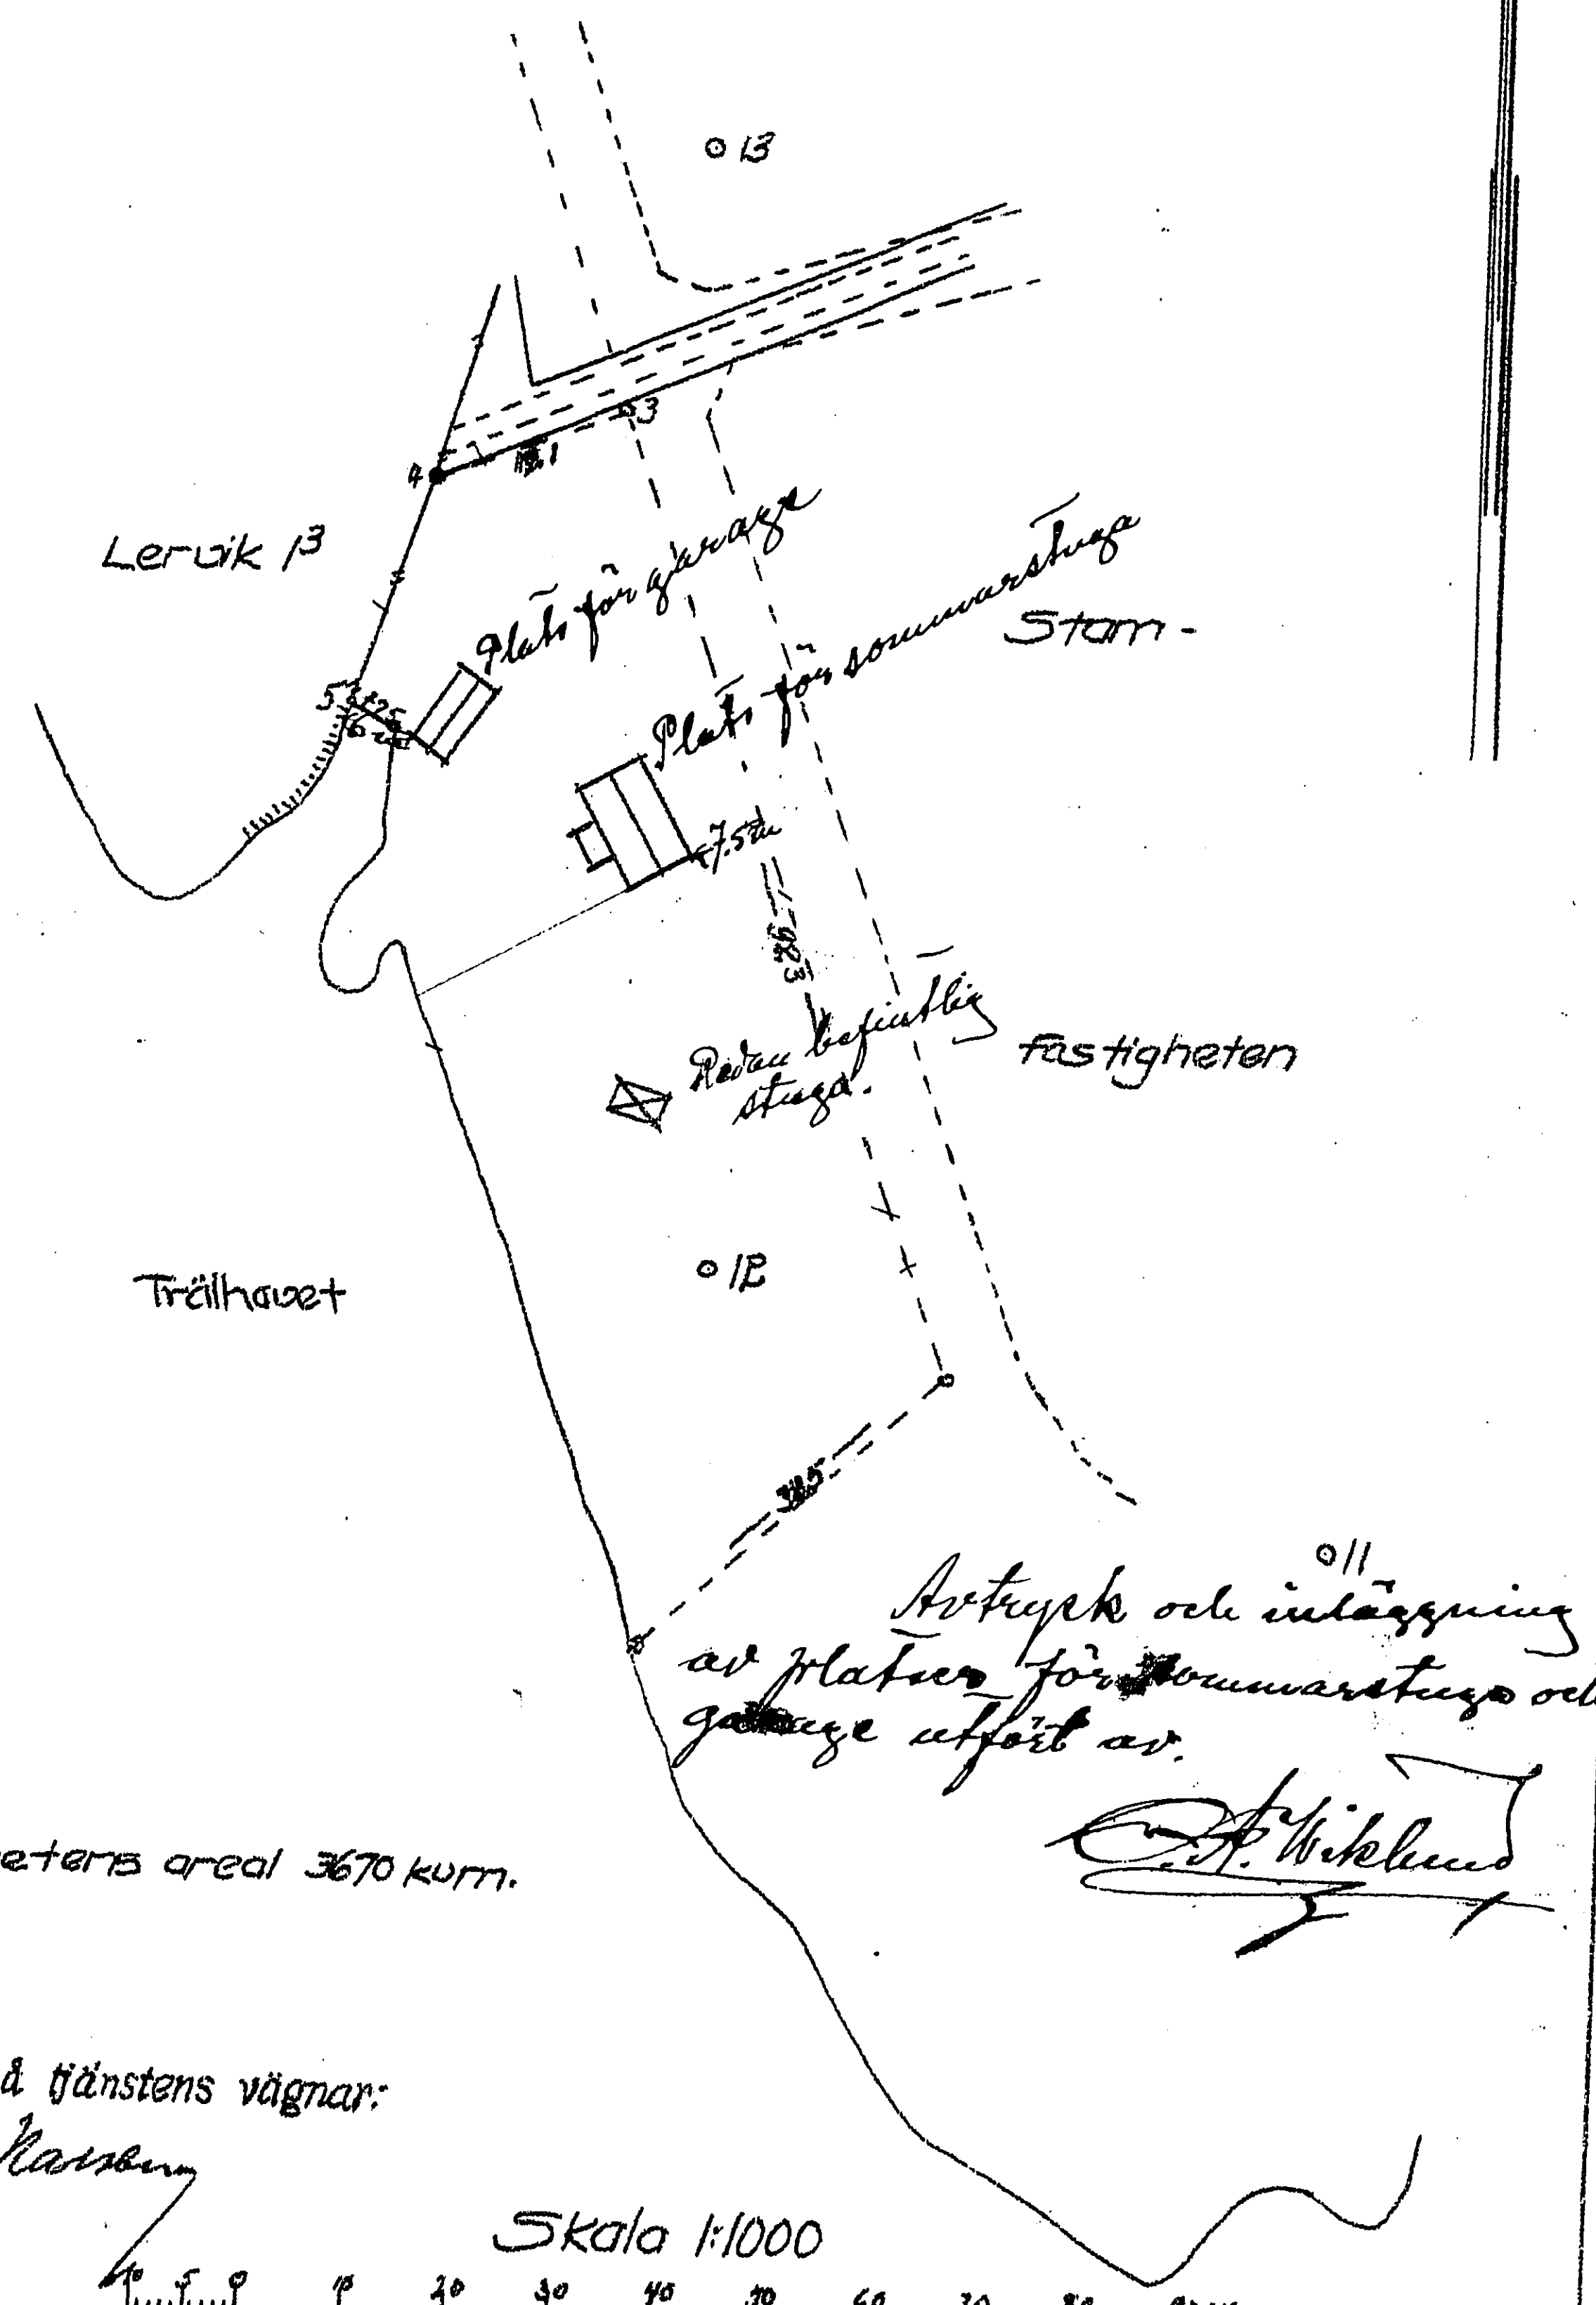 13
3
4
Lervik 1³
Plats för garage
Plats för sommarstuga
Stam-
5
6
7.5 m
92.3
Redan befintlig
stuga.
fastigheten
12
Trälhavet
38.5
11
Avtryck och inläggning
av platser för sommarstuga och
garage utfört av.
A. Wiklund
etens areal 3670 kvm.
å tjänstens vägnar:
Skala 1:1000
10 5 0 10 20 30 40 50 60 70 80